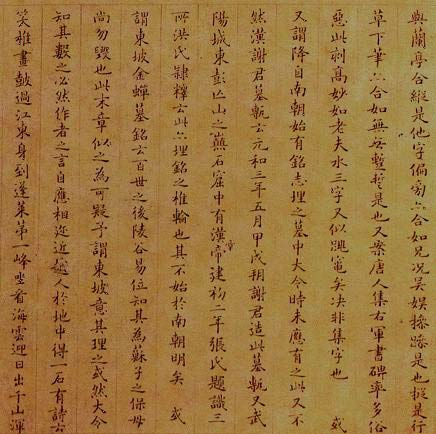 與蘭亭合縱是他字偏旁六合如兄况吴娱操躁是也挺是行
草下筆六合如無丢蹔誓是也又案唐人集右軍書碑率多俗
惡此刻高妙如老夫水三字又似興寔矣决非集字也 或
又謂降自南朝始有銘志埋之墓中大令時未應有之此又不
然漢謝君墓甎云元和三年五月甲戌朔謝君造此墓甎又武
陽城東彭亡山之巔石窟中有漢章帝建初二年張氏題識三
所洪氏隸釋云此六埋銘之椎輪也其不始於南朝明矣 或
謂東坡金蟬墓銘云百世之後陵谷易位知其為蘇子之保母
尚勿毀也此末章似之為可疑予謂東坡竟其理之或然大令
知其數之必然作者之言自應相近近越人於地中得一石有詩云
笑雅畫皷過江東身到蓬萊第一峰坐看海雲迎日出千山渾